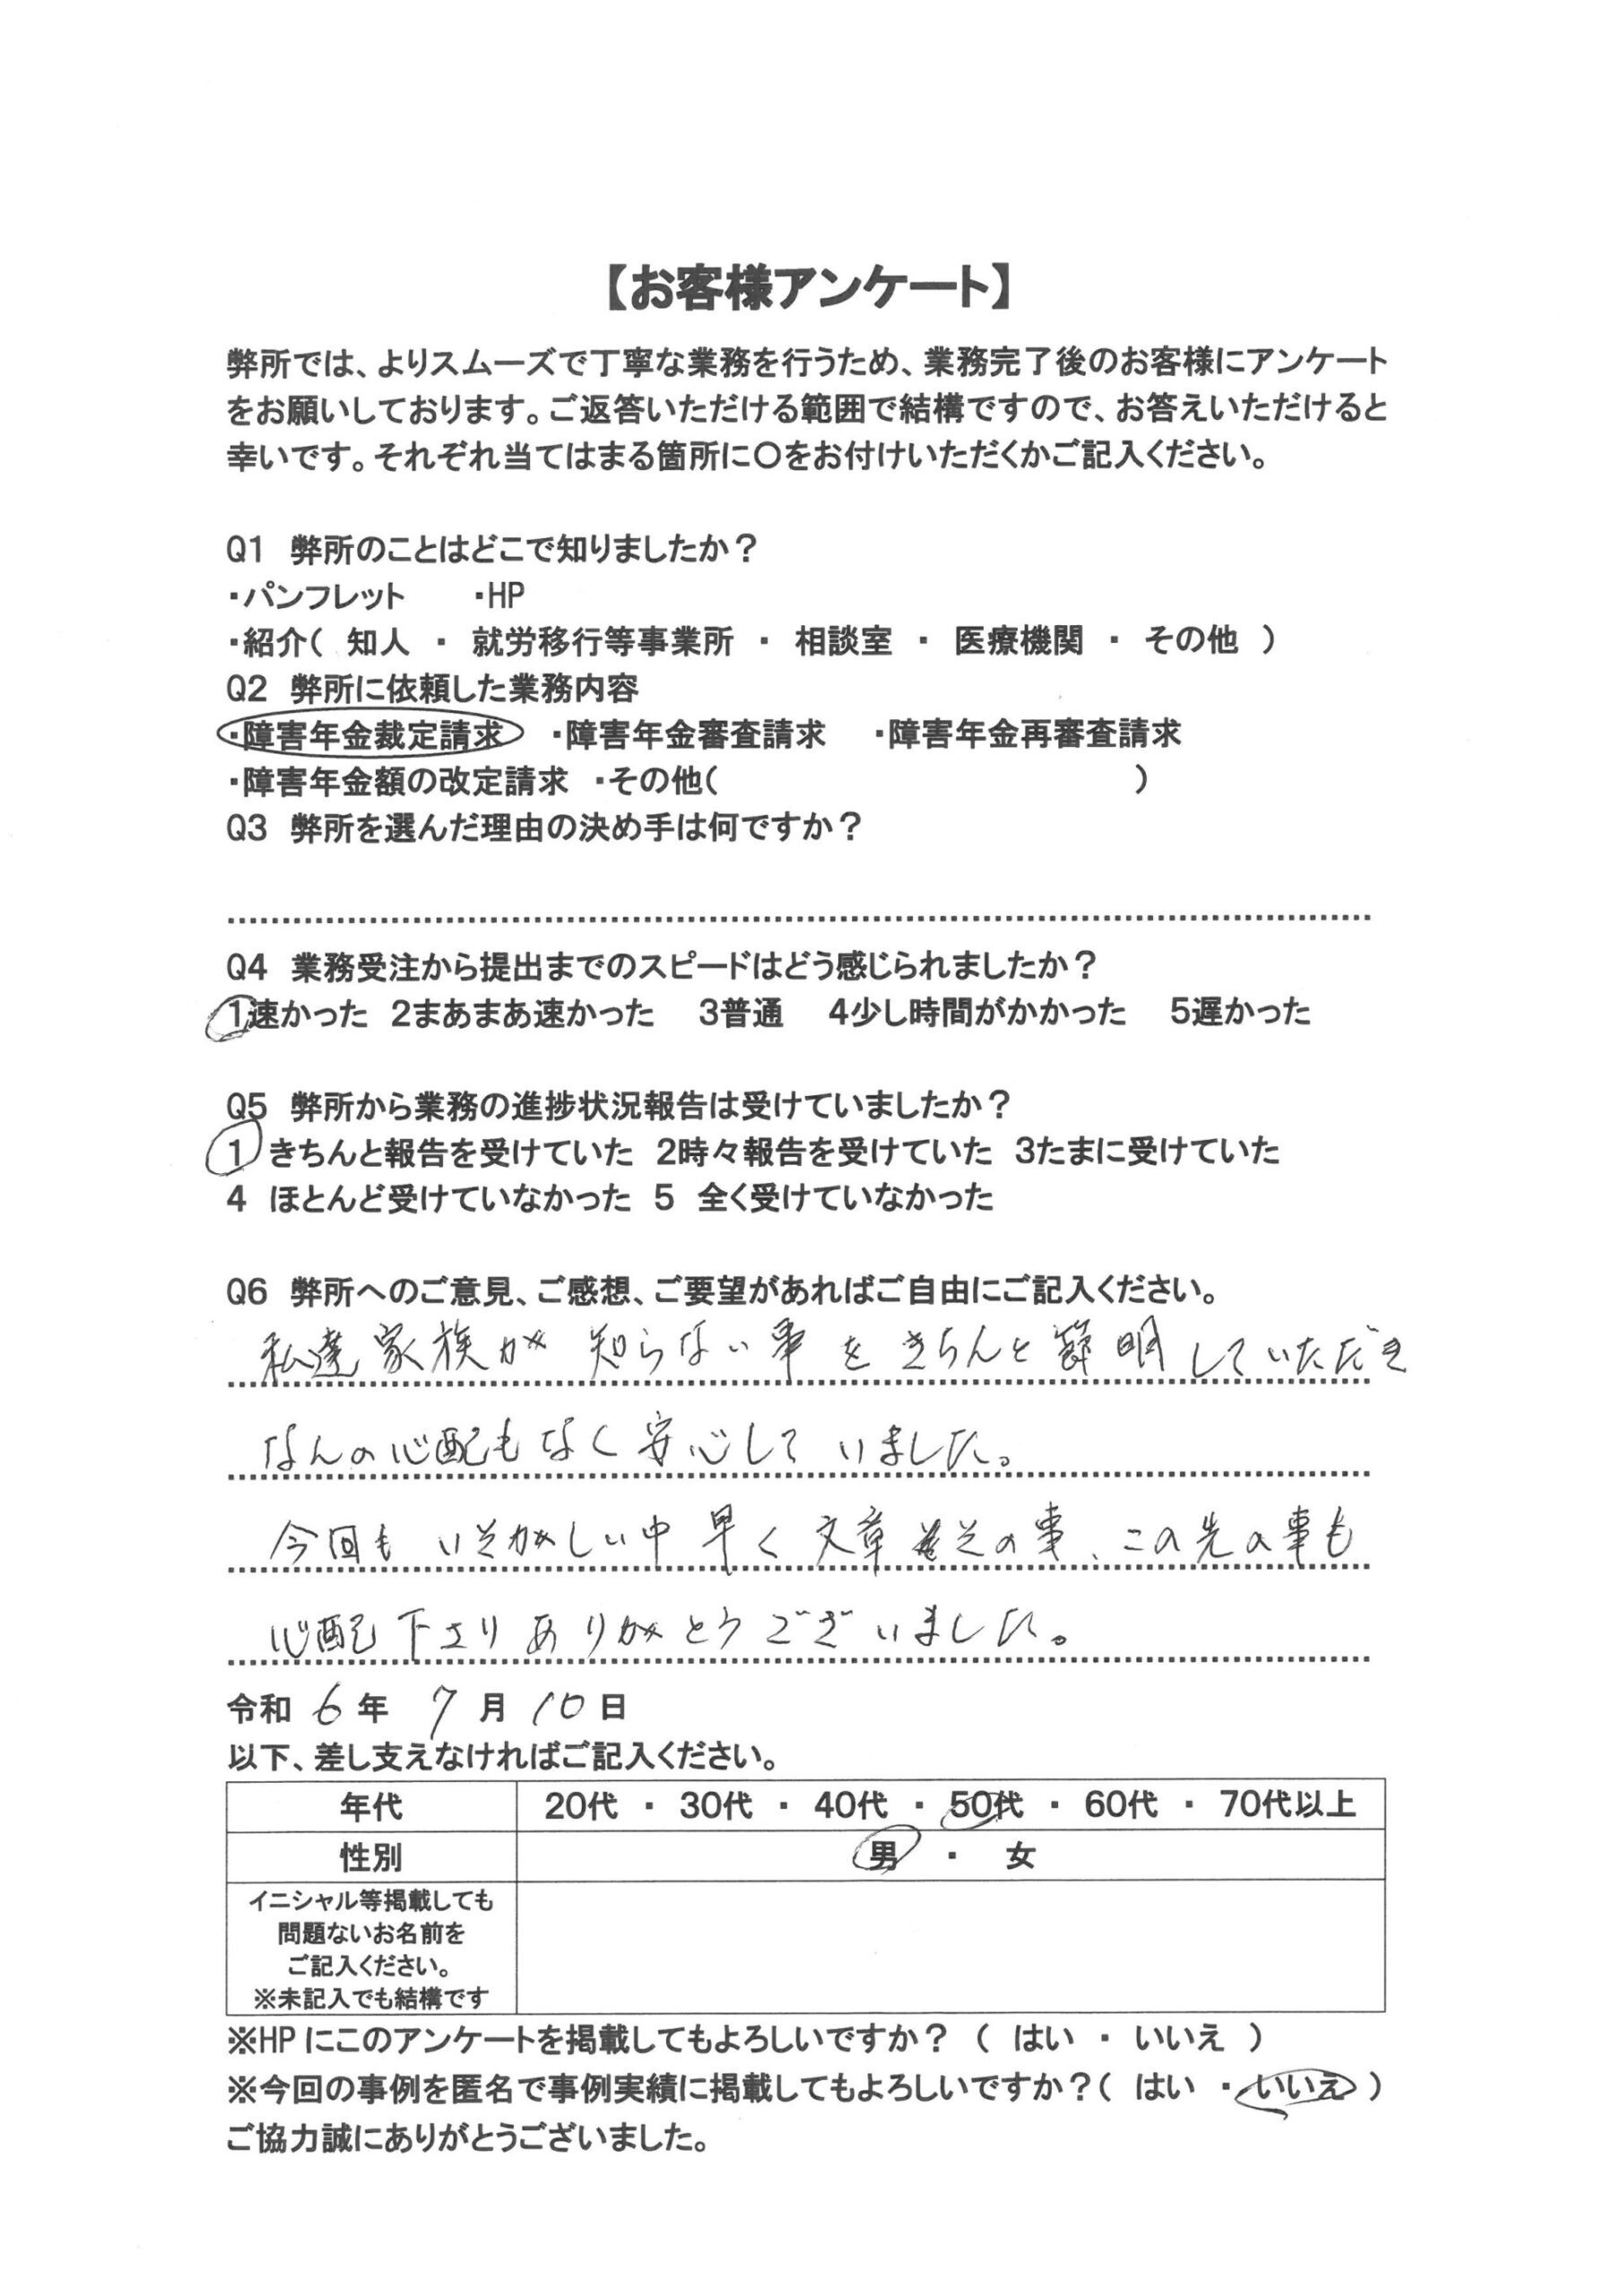 【お客様アンケート】
弊所では、よりスムーズで丁寧な業務を行うため、業務完了後のお客様にアンケート
をお願いしております。ご返答いただける範囲で結構ですので、お答えいただけると
幸いです。それぞれ当てはまる箇所に〇をお付けいただくかご記入ください。
Q1 弊所のことはどこで知りましたか？
・パンフレット ・HP
・紹介( 知人 ・ 就労移行等事業所 ・ 相談室 ・ 医療機関 ・ その他 )
Q2 弊所に依頼した業務内容
・障害年金裁定請求 ・障害年金審査請求 ・障害年金再審査請求
・障害年金額の改定請求 ・その他( )
Q3 弊所を選んだ理由の決め手は何ですか？
Q4 業務受注から提出までのスピードはどう感じられましたか？
1速かった 2まあまあ速かった 3普通 4少し時間がかかった 5遅かった
Q5 弊所から業務の進捗状況報告は受けていましたか？
1 きちんと報告を受けていた 2時々報告を受けていた 3たまに受けていた
4 ほとんど受けていなかった 5 全く受けていなかった
Q6 弊所へのご意見、ご感想、ご要望があればご自由にご記入ください。
私達家族が 知らない事を きちんと 明していただき
なんの心配もなく安心して いました。
今回も いそがしい中 早く 文章 その事、この先の事も
心配下さり ありがとうございました。
令和 6 年 7 月 10 日
以下、差し支えなければご記入ください。
年代 20代 ・ 30代 ・ 40代 ・ 50代 ・ 60代 ・ 70代以上
性別 男 ・ 女
イニシャル等掲載しても
問題ないお名前を
ご記入ください。
※未記入でも結構です
※HPにこのアンケートを掲載してもよろしいですか？ ( はい ・ いいえ )
※今回の事例を匿名で事例実績に掲載してもよろしいですか？( はい ・ いいえ )
ご協力誠にありがとうございました。